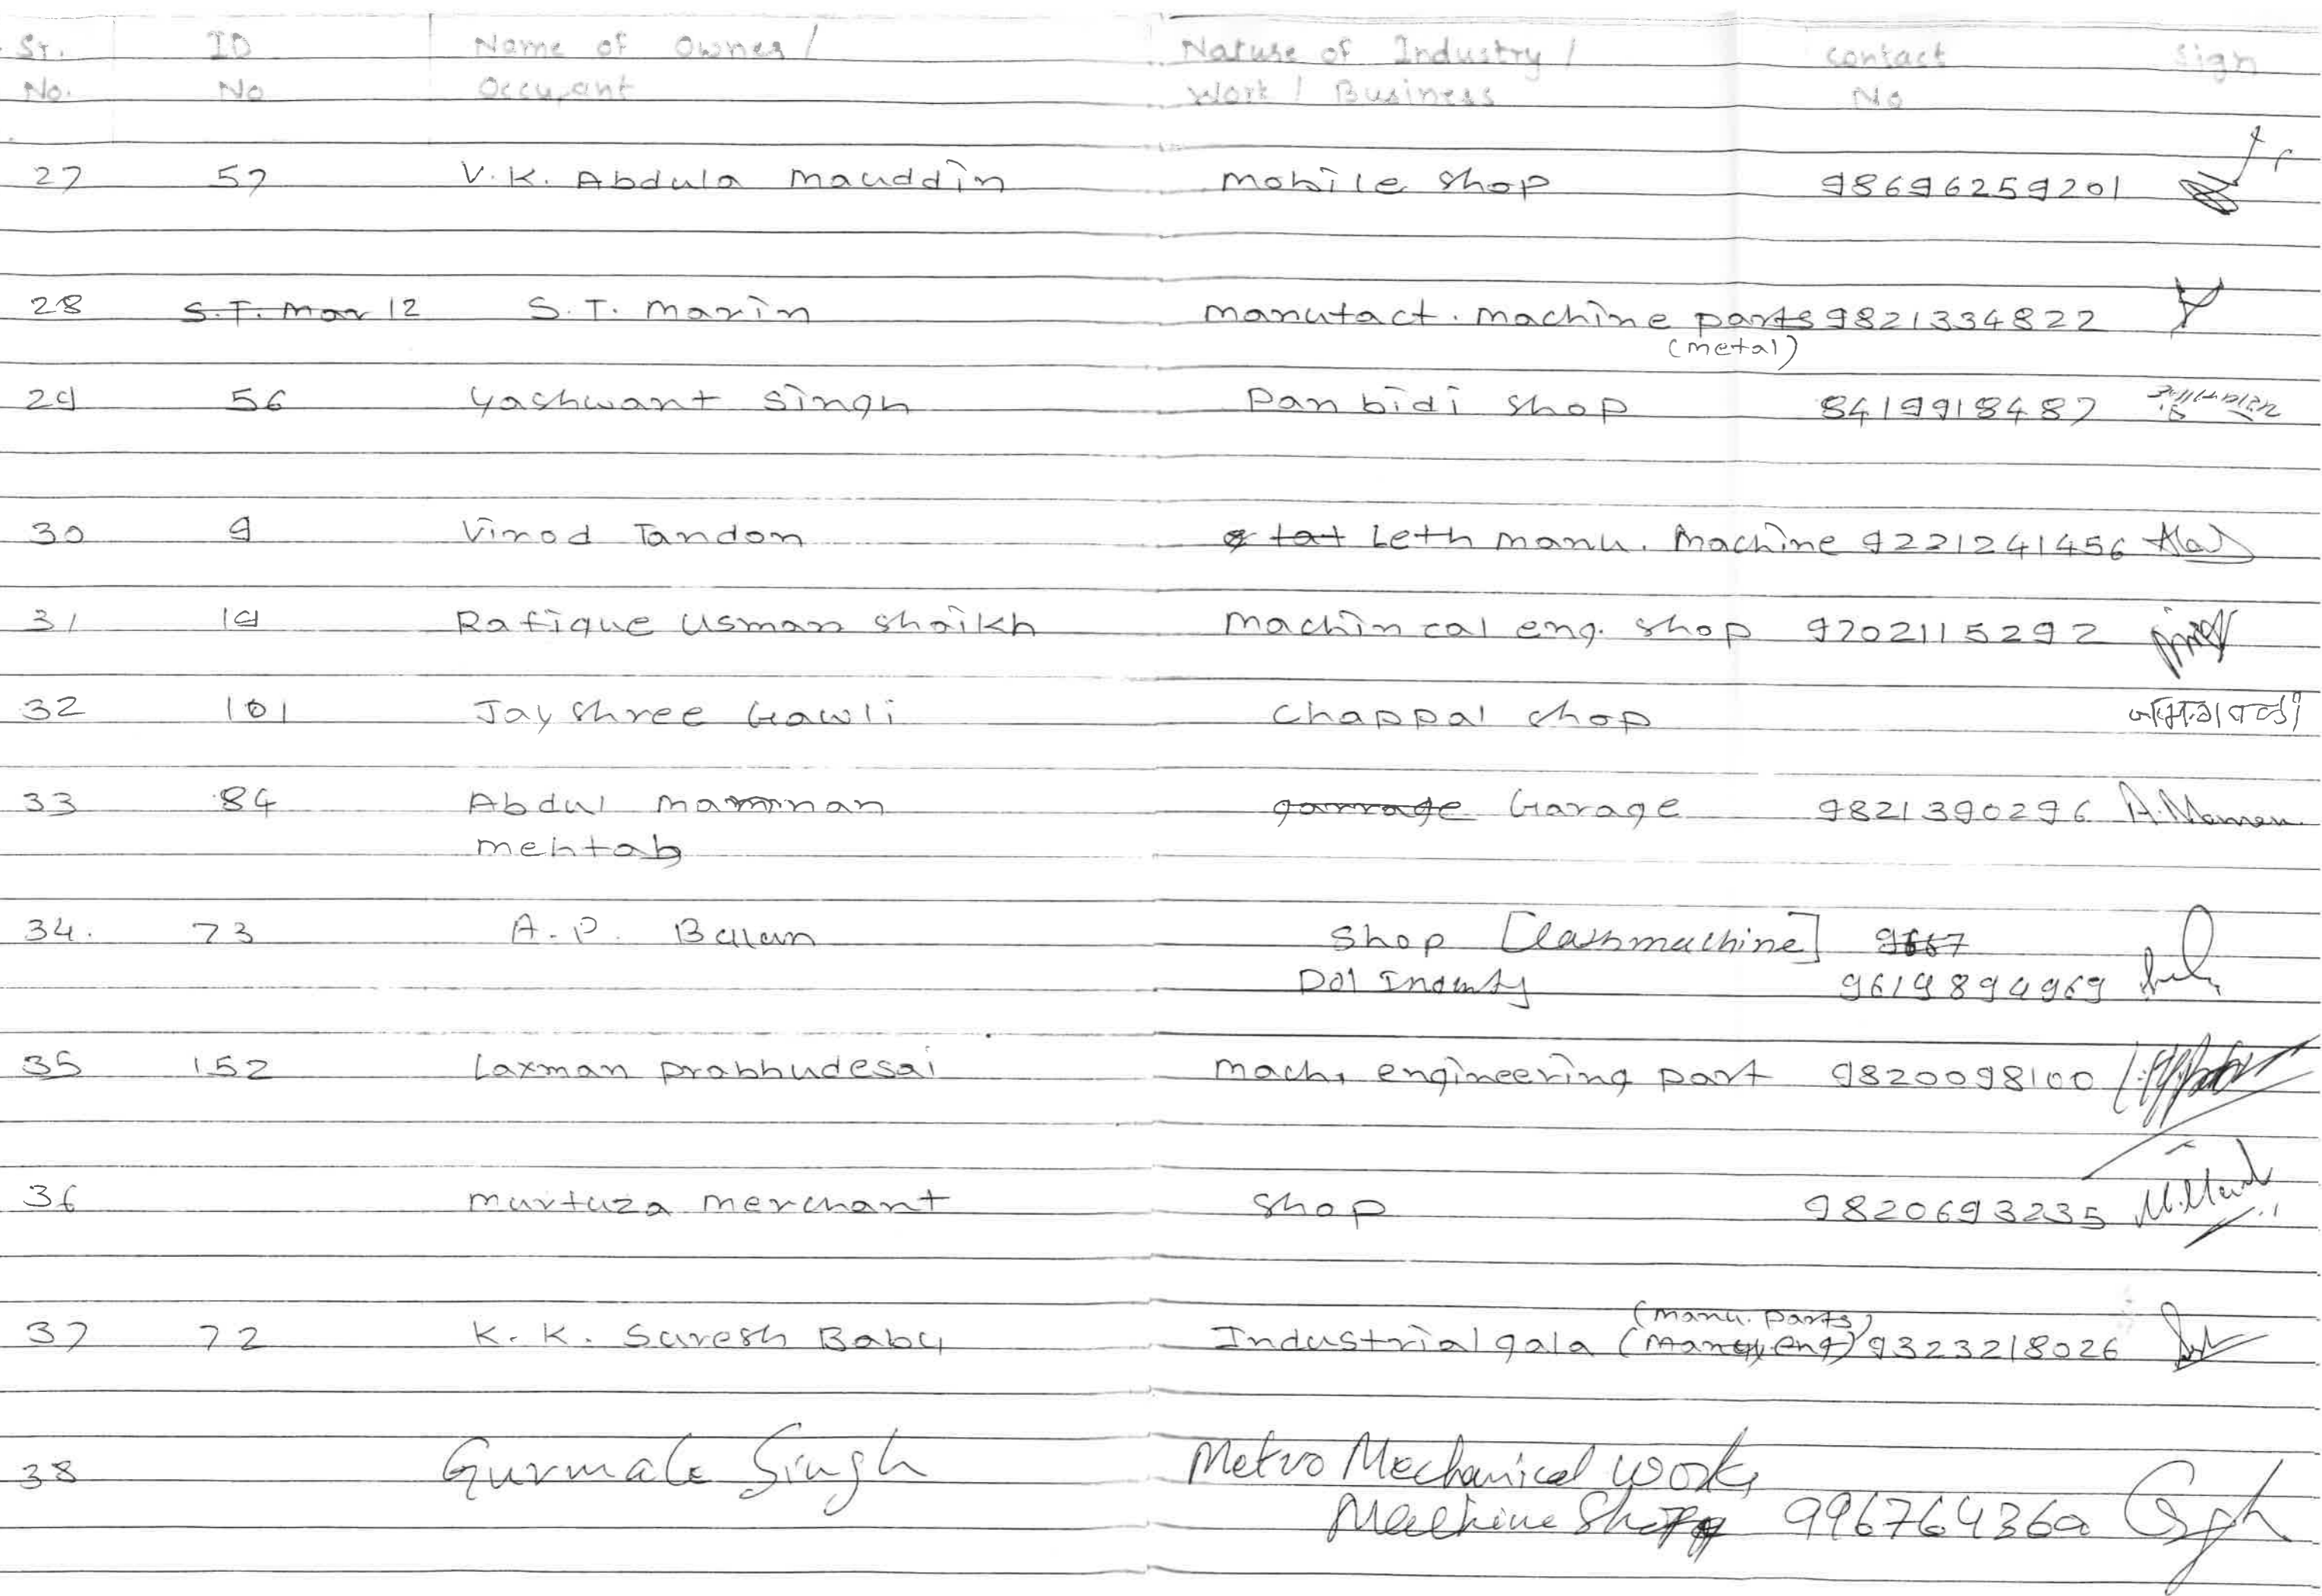 Sr. ID Name of Owner / Nature of Industry / Contact Sign
No. No Occupant Work / Business No
27 57 V.K. Abdula Mauddin Mobile shop 98696259201
28 S.T. Mar 12 S.T. Marin manufact. machine parts 9821334822
(metal)
29 56 Yashwant Singh Pan bidi shop 8419918487
30 9 Vinod Tandon Leth manu. Machine 9221241456
31 19 Rafique Usman Shaikh Machin cal eng. shop 9702115292
32 101 Jayshree Gawli Chappal shop
33 84 Abdul mamman garrage Garage 9821390296
mehtab
34. 73 A.P. Balan Shop [Lashmachine] 9667
Dol 9619894969
35 152 Laxman prabhudesai Mach. engineering part 9820098100
36 murtuza merchant Shop 9820693235
(manu. parts)
37 72 K.K. Suresh Babu Industrial gala 9323218026
38 Gurmale Singh Metro Mechanical works
Machine Shop